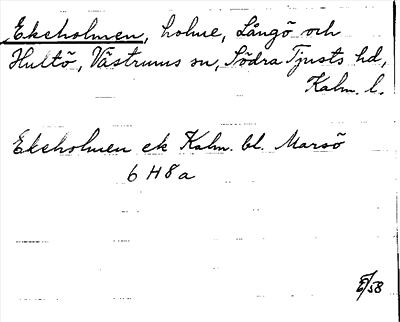 Ekeholmen, holme, Långö och
Hultö, Västrums sn, Södra Tjusts hd,
Kalm. l.
Ekeholmen ek Kalm. bl. Marsö
6 H 8 a
/58